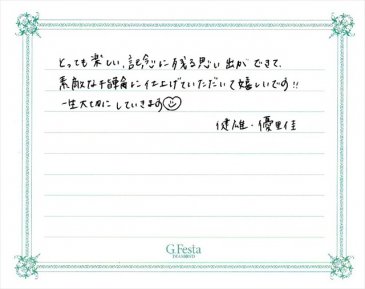 とっても楽しい、記念に残る思い出ができて、
素敵な指輪に仕上げていただいて嬉しいです!!
一生大切にしていきます☺
健雄・優里佳
G.Festa
DIAMOND